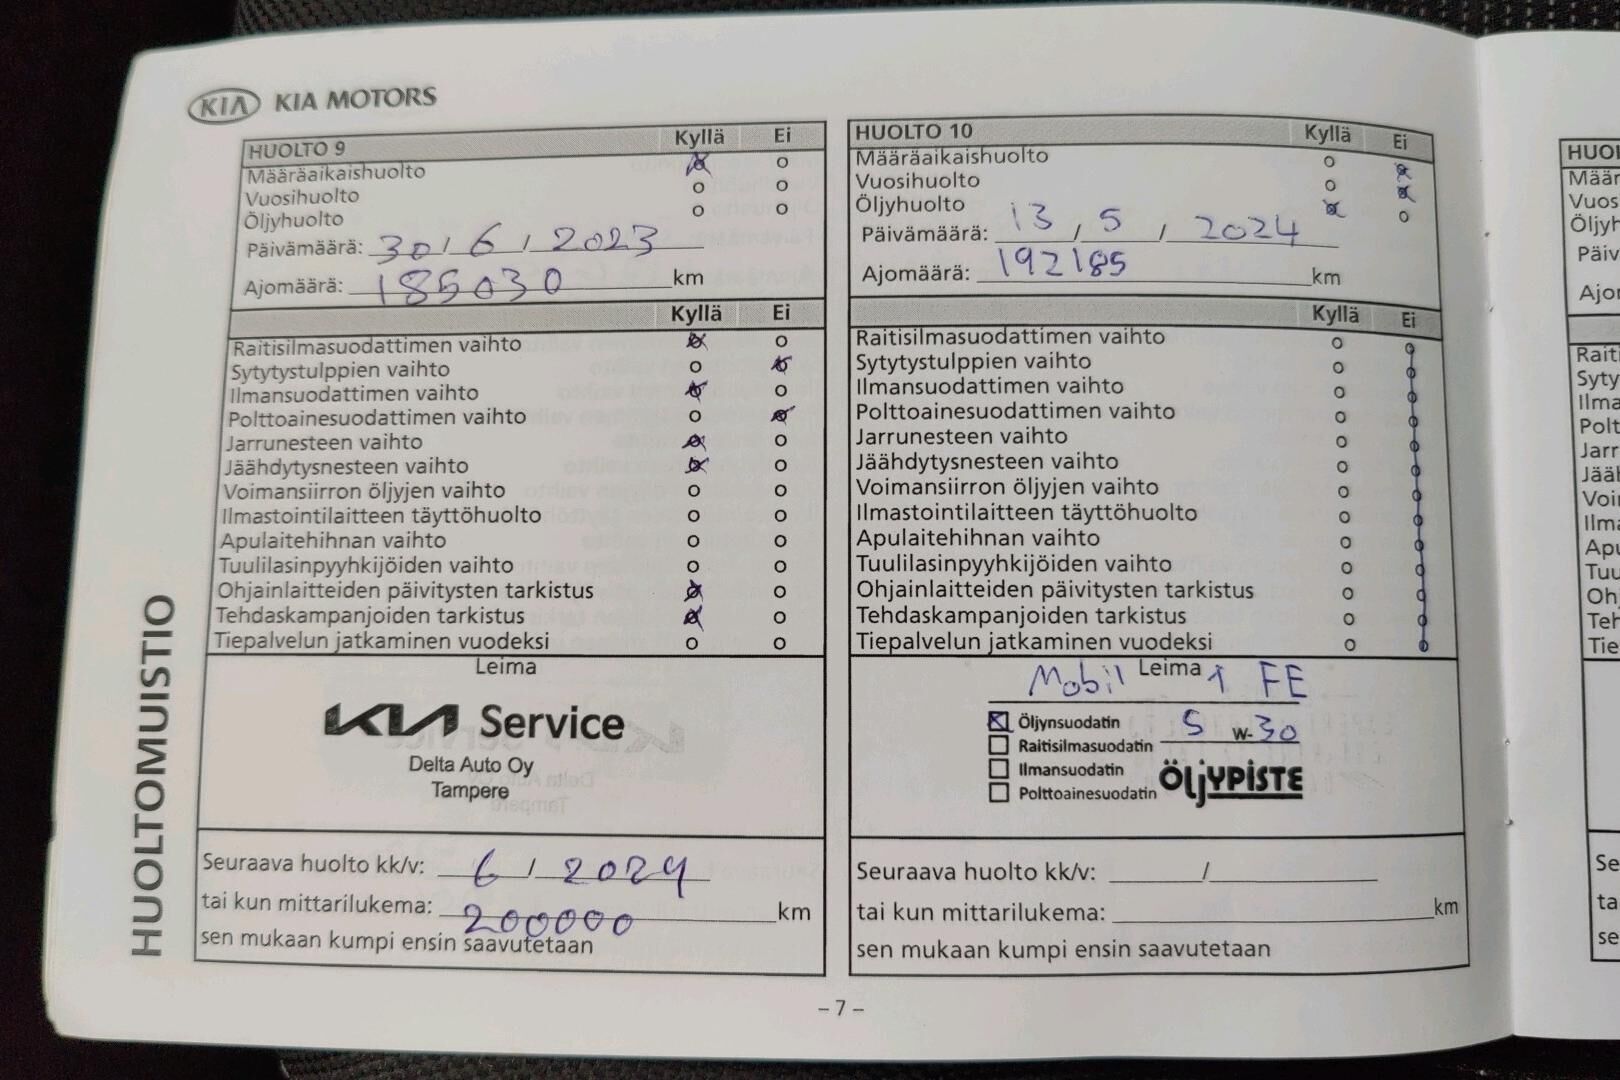 KIA KIA MOTORS
HUOLTOMUISTIO
HUOLTO 9 Kyllä Ei
Määräaikaishuolto
Vuosihuolto
Öljyhuolto
Päivämäärä: 30 / 6 / 2023
Ajomäärä: 185030 km
Kyllä Ei
Raitisilmasuodattimen vaihto
Sytytystulppien vaihto
Ilmansuodattimen vaihto
Polttoainesuodattimen vaihto
Jarrunesteen vaihto
Jäähdytysnesteen vaihto
Voimansiirron öljyjen vaihto
Ilmastointilaitteen täyttöhuolto
Apulaitehihnan vaihto
Tuulilasinpyyhkijöiden vaihto
Ohjainlaitteiden päivitysten tarkistus
Tehdaskampanjoiden tarkistus
Tiepalvelun jatkaminen vuodeksi
Leima
KIA Service
Delta Auto Oy
Tampere
Seuraava huolto kk/v: 6 / 2024
tai kun mittarilukema: 200000 km
sen mukaan kumpi ensin saavutetaan
HUOLTO 10 Kyllä Ei
Määräaikaishuolto
Vuosihuolto
Öljyhuolto
Päivämäärä: 13 / 5 / 2024
Ajomäärä: 192185 km
Kyllä Ei
Raitisilmasuodattimen vaihto
Sytytystulppien vaihto
Ilmansuodattimen vaihto
Polttoainesuodattimen vaihto
Jarrunesteen vaihto
Jäähdytysnesteen vaihto
Voimansiirron öljyjen vaihto
Ilmastointilaitteen täyttöhuolto
Apulaitehihnan vaihto
Tuulilasinpyyhkijöiden vaihto
Ohjainlaitteiden päivitysten tarkistus
Tehdaskampanjoiden tarkistus
Tiepalvelun jatkaminen vuodeksi
Leima
Mobil 1 FE
Öljynsuodatin 5 W-30
Raitisilmasuodatin
Ilmansuodatin
Polttoainesuodatin
ÖljYPISTE
Seuraava huolto kk/v: /
tai kun mittarilukema: km
sen mukaan kumpi ensin saavutetaan
– 7 –